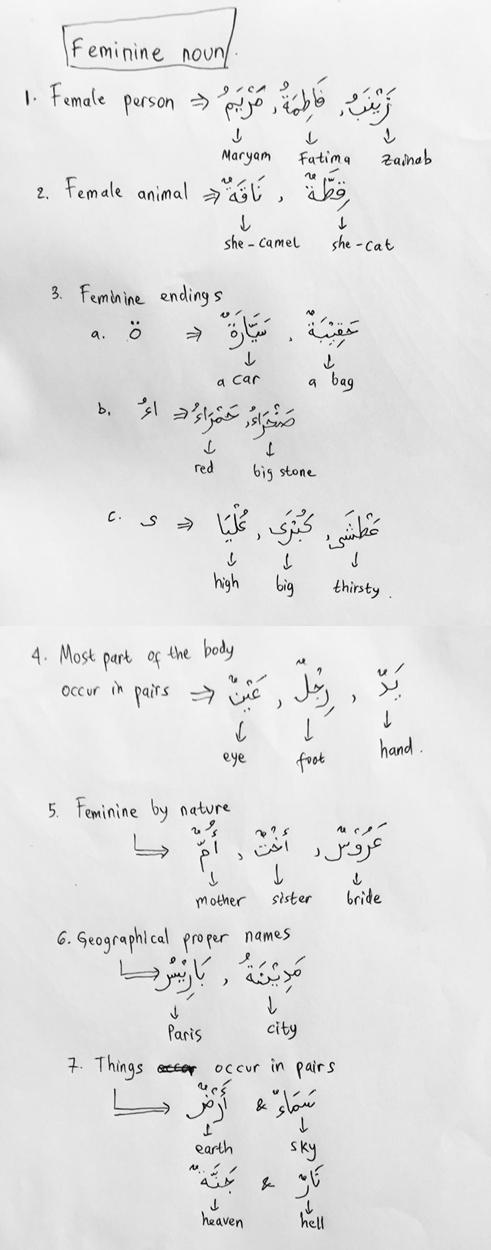 Feminine noun
1. Female person ⇒ مَرْيَمُ, فَاطِمَةُ, زَيْنَبُ
Maryam Fatima Zainab
2. Female animal ⇒ نَاقَةٌ , قِطَّةٌ
she-camel she-cat
3. Feminine endings
a. ة ⇒ سَيَّارَةٌ , حَقِيْبَةٌ
a car a bag
b. اءُ ⇒ حَمْرَاءُ, صَخْرَاءُ
red big stone
c. ى ⇒ عُلْيَا , كُبْرَى , عَطْشَى
high big thirsty.
4. Most part of the body
occur in pairs ⇒ عَيْنٌ , رِجْلٌ , يَدٌ
eye foot hand.
5. Feminine by nature
أُمٌّ , أُخْتٌ , عَرُوْسٌ
mother sister bride
6. Geographical proper names
بَارِيْسُ , مَدِيْنَةُ
Paris city
7. Things occur in pairs
أَرْضٌ & سَمَاءٌ
earth sky
جَنَّةٌ & نَارٌ
heaven hell